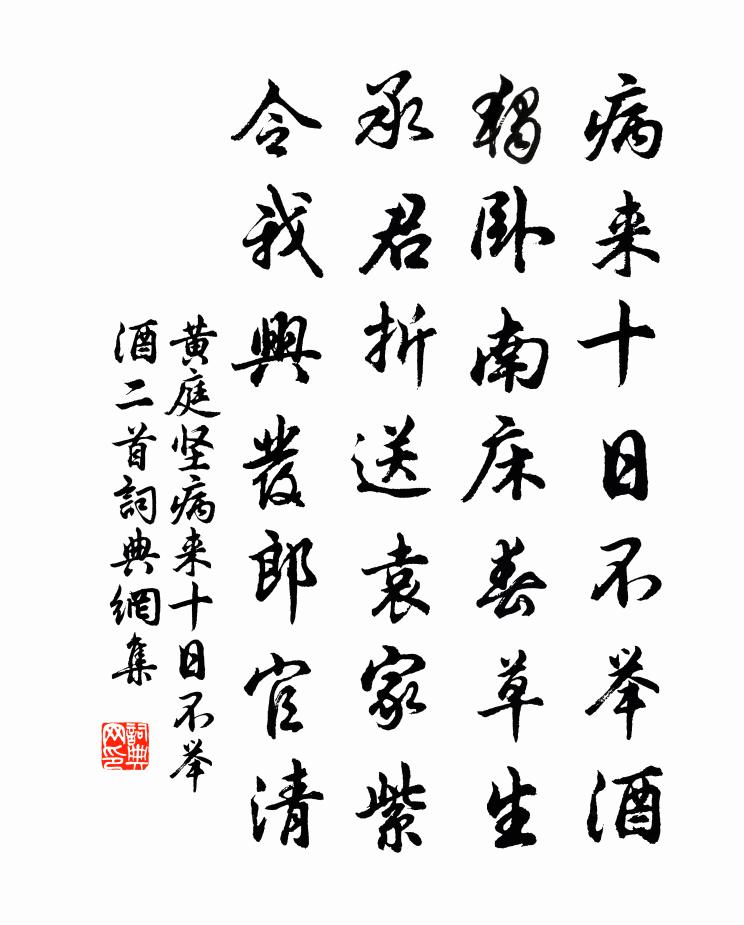 病来十日不举酒
独卧南床春草生
承君折送袁家紫
令我興發郎官清
黄庭坚病来十日不举
酒二首詞典網集
詞典网印